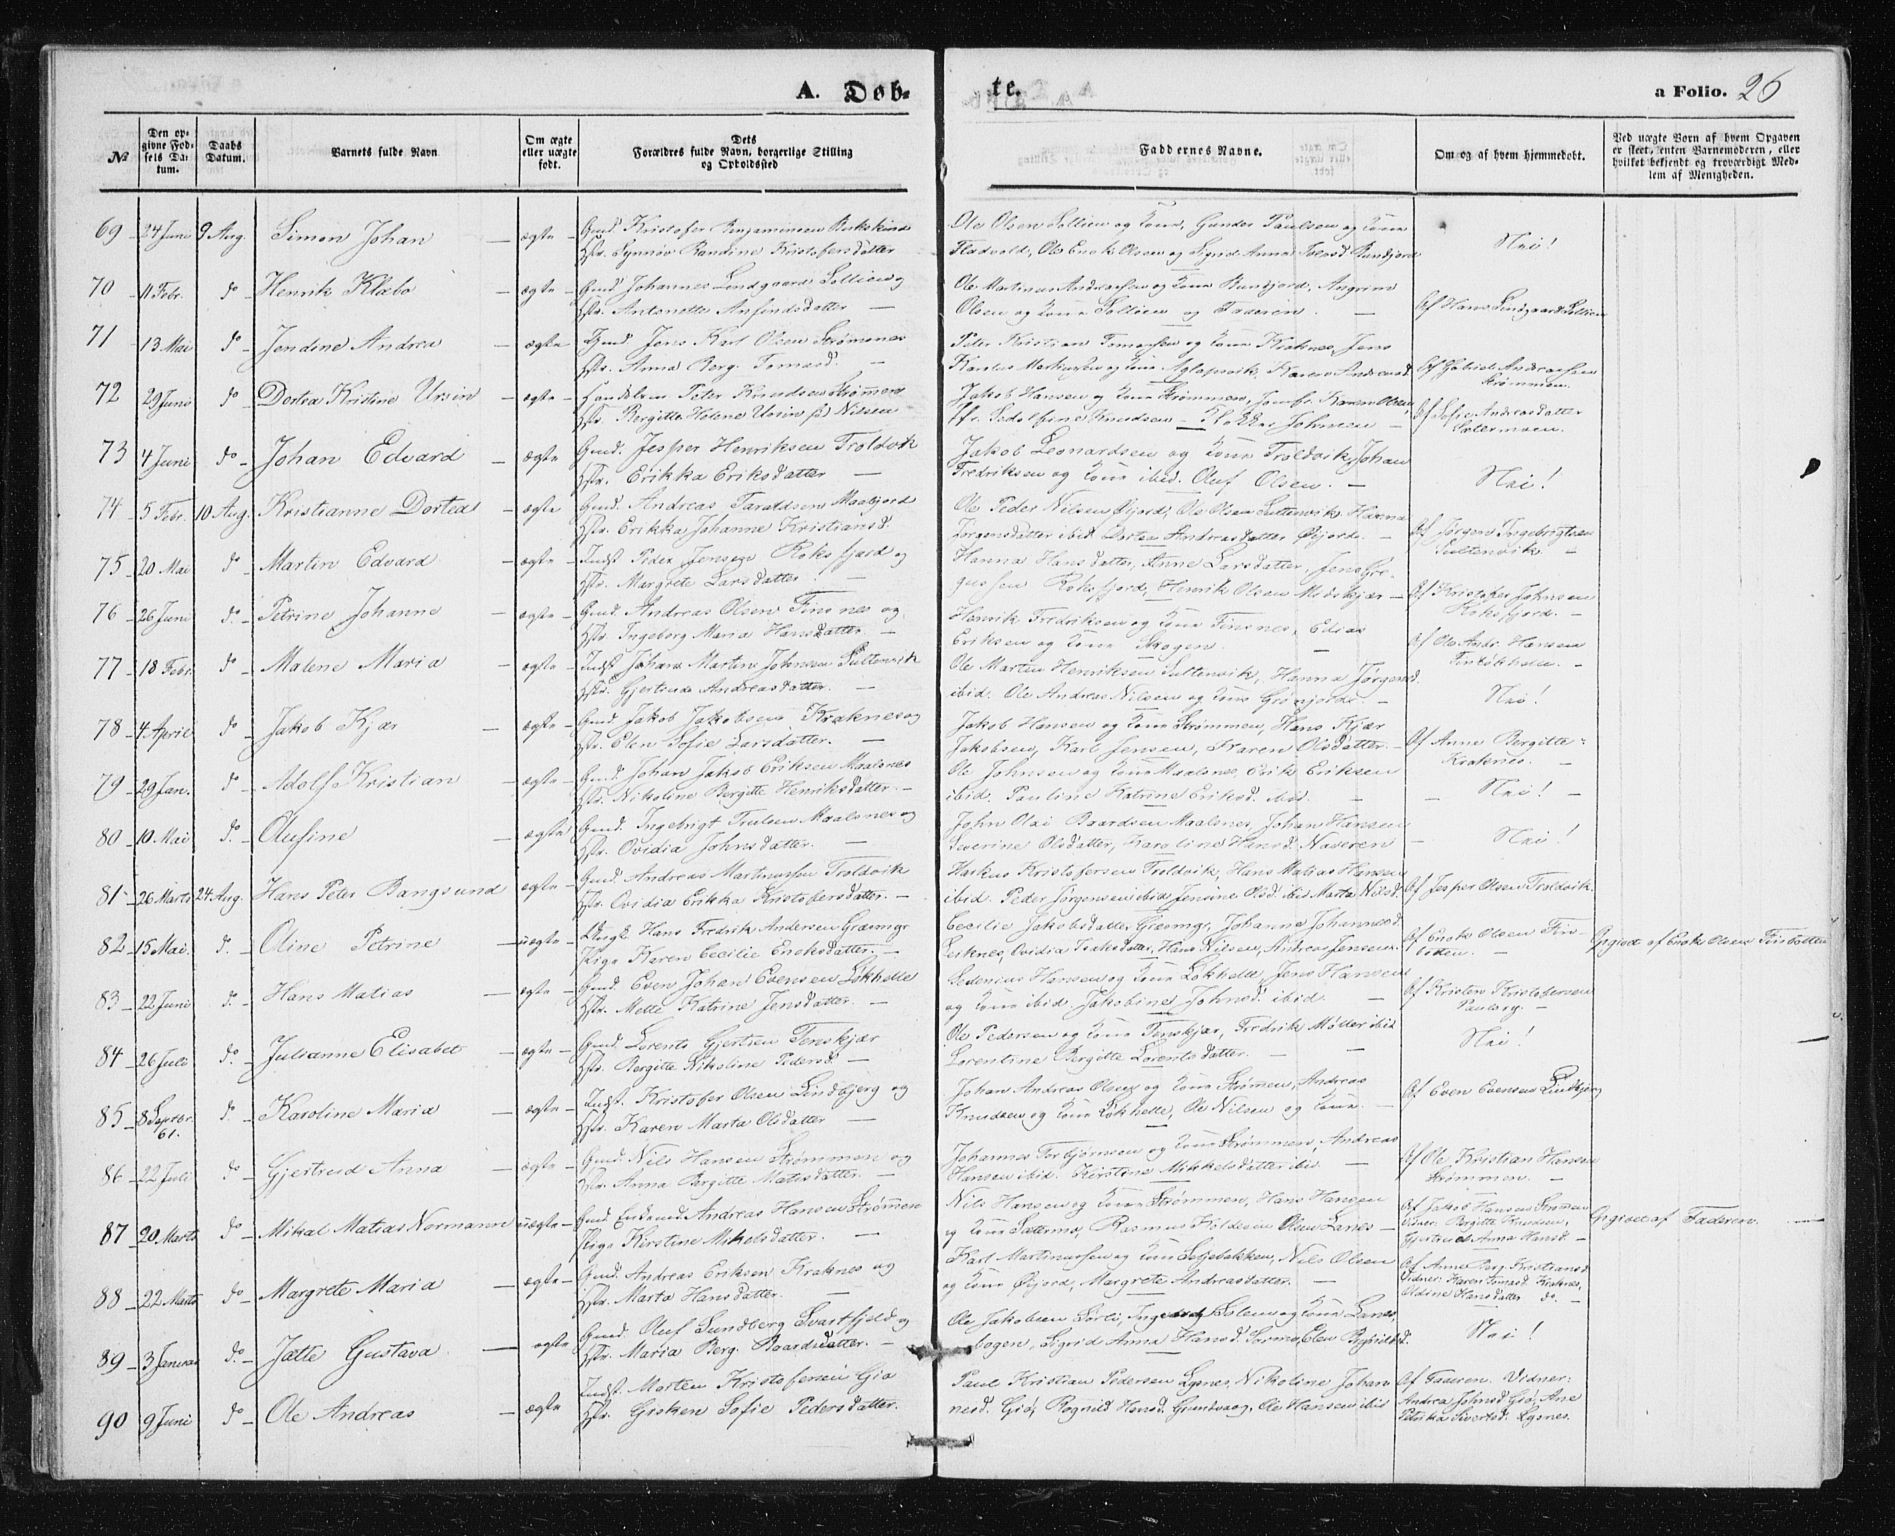 A. Døb-
te.
a Folio. 26
№
Den op-
givne Fød-
sels Da-
tum.
Daabs
Datum.
Barnets fulde Navn
Om ægte
eller uægte
født.
Dets
Forældres fulde Navn, borgerlige Stilling
og Opholdssted
Faddernes Navne.
Om og af hvem hjemmedøbt.
Ved uægte Børn af hvem Opgaven
er skeet, enten Barnemoderen, eller
hvilket bekjendt og troværdigt Med-
lem af Menigheden.
69 24 Juni 9 Aug. Simon Johan — ægte - Gmd Kristofer Benjaminsen
Hstr. Synnøv Randine Kristofersdatter
Ole Olsen Sollien og Kone, Gunder Paulsen og Kone
Ole Enok Olsen og Sigrid Anna
Nei!
70 - 11 Febr. do Henrik Klæbo — ægte - Gmd Johannes Lindgaard Sollien og
Hstr. Antonette Anfindsdatter —
Ole Martinus Andreassen og Kone Angrim
Olsen og Kone Sollien og Faderen. —
Af Hans Lindgaard Sollien
71 13 Mai do - Jendine Andrea — ægte Gmd Jens Karl Olsen Strømsnes
Hstr. Anna Berg. Tomasd. —
Peter Kristian Tomassen og Kone Kraknes, Jens
og Kone Aglapsvik, Karen Andreasd.
Af Gabriel Andreassen
Strømmen.
72 29 Juni do Dortea Kristine Ursin - ægte - Handelsm. Peter Knudsen Strømmen
Hstr. Bergitte Helene Ursin f. Nilsen
Jakob Hansen og Kone Strømmen, Jomfr. Karen Olsen,
Knudsen — Klokker Johnsen —
Af Sofie Andreasdatter
73 4 Juni do - Johan Edvard — ægte Gmd. Jesper Henriksen Troldvik
Hstr. Erikka Eriksdatter —
Jakob Leonardsen og Kone Troldvik, Johan
Fredriksen og Kone ibid. Oluf Olsen. —
Nei!
74 - 5 Febr. 10 Aug. Kristianne Dortea - ægte Gmd. Andreas Taraldsen
Hstr. Erikka Johanna Kristiansd.
Ole Peder Nilsen Øijord, Ole Olsen Sultenvik, Hanna
Jørgensdatter ibid. Dortea Andreasdatter Øijord. —
Af Jørgen Ingebrigtsen
Sultenvik —
75 - 20 Mai do Martin Edvard — ægte - Indst Peder Jensen Roksfjord og
Hstr. Margrete Larsdatter —
Hanna Hansdatter, Anne Larsdatter, Jens Gre-
gussen Roksfjord, Henrik Olsen —
Af Kristofer Johnsen
Roksfjord. —
76 - 26 Juni do. Petrine Johanne — ægte - Gmd. Andreas Olsen Finsnes og
Hstr. Ingeborg Maria Hansdatter —
Henrik Fredriksen og Kone Finsnes, Edias
Eriksen og Kone Skogen. —
Af Ole Andr. Hansen
77 - 18 Febr. do - Malene Maria — ægte - Indst Johan Martin Johnsen Sultenvik
Hstr. Gjertrude Andreasdatter. —
Ole Martin Henriksen Sultenvik, Hanna Jørgensd.
ibid. Ole Andreas Nilsen og Kone —
Nei!
78 - 4 April do Jakob Kjær — ægte - Gmd. Jakob Jakobsen Kraknes og
Hstr. Elen Sofie Larsdatter. —
Jakob Hansen og Kone Strømmen, Hans Kjær
Jakobsen, Karl Jensen, Karen Olsdatter. —
Af Anne Bergitte
Kraknes. —
79 - 29 Jan. do - Adolf Kristian — ægte - Gmd. Johan Jakob Eriksen Maalsnes
Hstr. Nikoline Bergitte Henriksdatter. —
Ole Johnsen og Kone Maalsnes, Erik Eriksen
ibid. Pauline Katrine Eriksd. ibid. —
— Nei! —
80 - 10 Mai do. Olufine — ægte Gmd. Ingebrigt Trulsen Maalsnes og
Hstr. Ovidia Johnsdatter. —
John Olai Baardsen Maalsnes, Johan Hansen
Severine Olsdatter, Karoline Hansd. Naveren —
Nei!
81 - 26 Marts 24 Aug. Hans Peter Bangsund ægte - Gmd. Andreas Martinussen Troldvik
Hstr. Ovidia Erikka Kristofersdatter. —
Markus Kristofersen Troldvik, Hans Matias Hansen
ibid. Peder Jørgensen ibid. Jensine Olsd. ibid. Marta Nilsd.
Af Jesper Olsen Troldvik.
82 - 15 Mai. d. - Oline Petrine — uægte - Ungk. Hans Fredrik Andersen
Pige Karen Cecilie Enoksdatter. —
Cecilie Jakobsdatter Johanna Johannesd.
Leiknes, Ovidia Hans Nilsen, Andreas Jensen.
Af Enok Olsen Fin-
botten. —
Opgivet af Enok Olsen Finbotten
83 - 22 Juni d. - Hans Matias — ægte - Gmd. Even Johan Evensen Løkhelle
Hstr. Mette Katrine Jensdatter —
Hansen og Kone Løkhelle, Jens Hansen
og Kone ibid. Jakobine Johnsd. ibid. —
Af Kristen Kristofersen
84 - 26 Juli do. Julianne Elisabet — ægte - Gmd. Lorents Gjertsen Tenskjær
Hstr. Bergitte Nikoline Pedersd. —
Ole Pedersen og Kone Tenskjær, Fredrik Møller ibid.
Lorentine Bergitte Lorentsdatter. —
Nei!
85 - 8 Septbr.
61. d. - Karoline Maria — ægte - Indst. Kristofer Olsen Lindbjerg og
Hstr. Karen Marta Olsdatter —
Johan Andreas Olsen og Kone Strømen, Andreas
Knudsen og Kone Løkhelle, Ole Nilsen og Kone. —
Af Even Evensen Lindbjerg
86 - 22 Juli do Gjertrud Anna — ægte - Gmd. Nils Hansen Strømmen og
Hstr. Anna Bergitte Matisdatter. —
Johannes Torbjørnsen og Kone Strømmen, Andreas
Hansen ibid. Kirstine Mikkelsdatter ibid. —
Af Ole Kristian Hansen
Strømmen. —
87 - 20 Marts do Mikal Matias Normann uægte - Gmd Enkemd. Andreas Hansen Strømmen
Pige Kirstine Mikelsdatter. —
Nils Hansen og Kone Strømmen, Hans Hansen
og Kone Rasmus Olsen Lanes —
Af Jakob Hansen Strømmen
Vidner: Bergitte Knudsen,
Gjertrud Anna Hansd. —
Opgivet af Faderen. —
88 - 22 Marts do - Margrete Maria — ægte - Gmd. Andreas Eriksen Kraknes og
Hstr. Marta Hansdatter. —
Karl Martinussen og Kone Nils Olsen
og Kone Øijord, Margrete Andreasdatter. —
Af Anne Berg. Kristiansd.
Vidner: Karen Tomasd. Kraknes,
Oldine Hansdatter do. —
89 - 3 Januar do. Jatte Gustava — ægte Gmd. Oluf Lundberg Svartfjeld og
Hstr. Maria Berg. Baardsdatter. —
Ole Jakobsen Sørli, og Kone Lanes,
bogen, Sigrid Anna Hansd.
Nei!
90 - 9 Juni do - Ole Andreas — ægte Indst. Morten Kristofersen Giø
Hstr. Gisken Sofie Pedersdatter.
Paul Kristian Pedersen Lysnes, Nikoline Johan-
nesd. Giø, Ragnild Hansd. Ole Hansen ibid.
Af Faderen. Vidner:
Andrea Johnsd. Giø, Ane
Sivertsd. Lysnes.